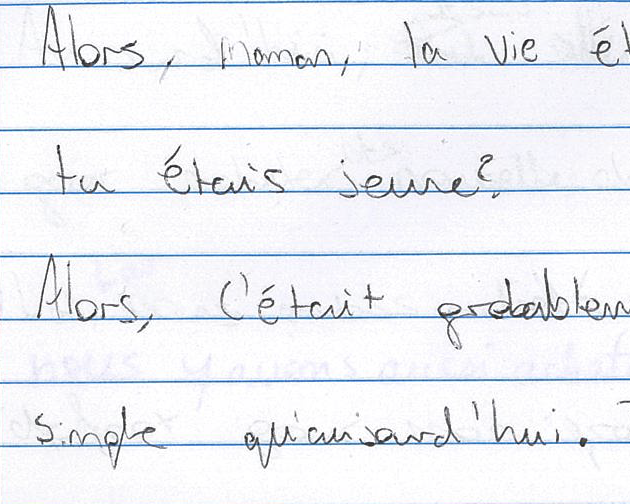 Alors, maman, la vie ét
tu étais jeune?
Alors, c'était probablem
simple qu'aujourd'hui.